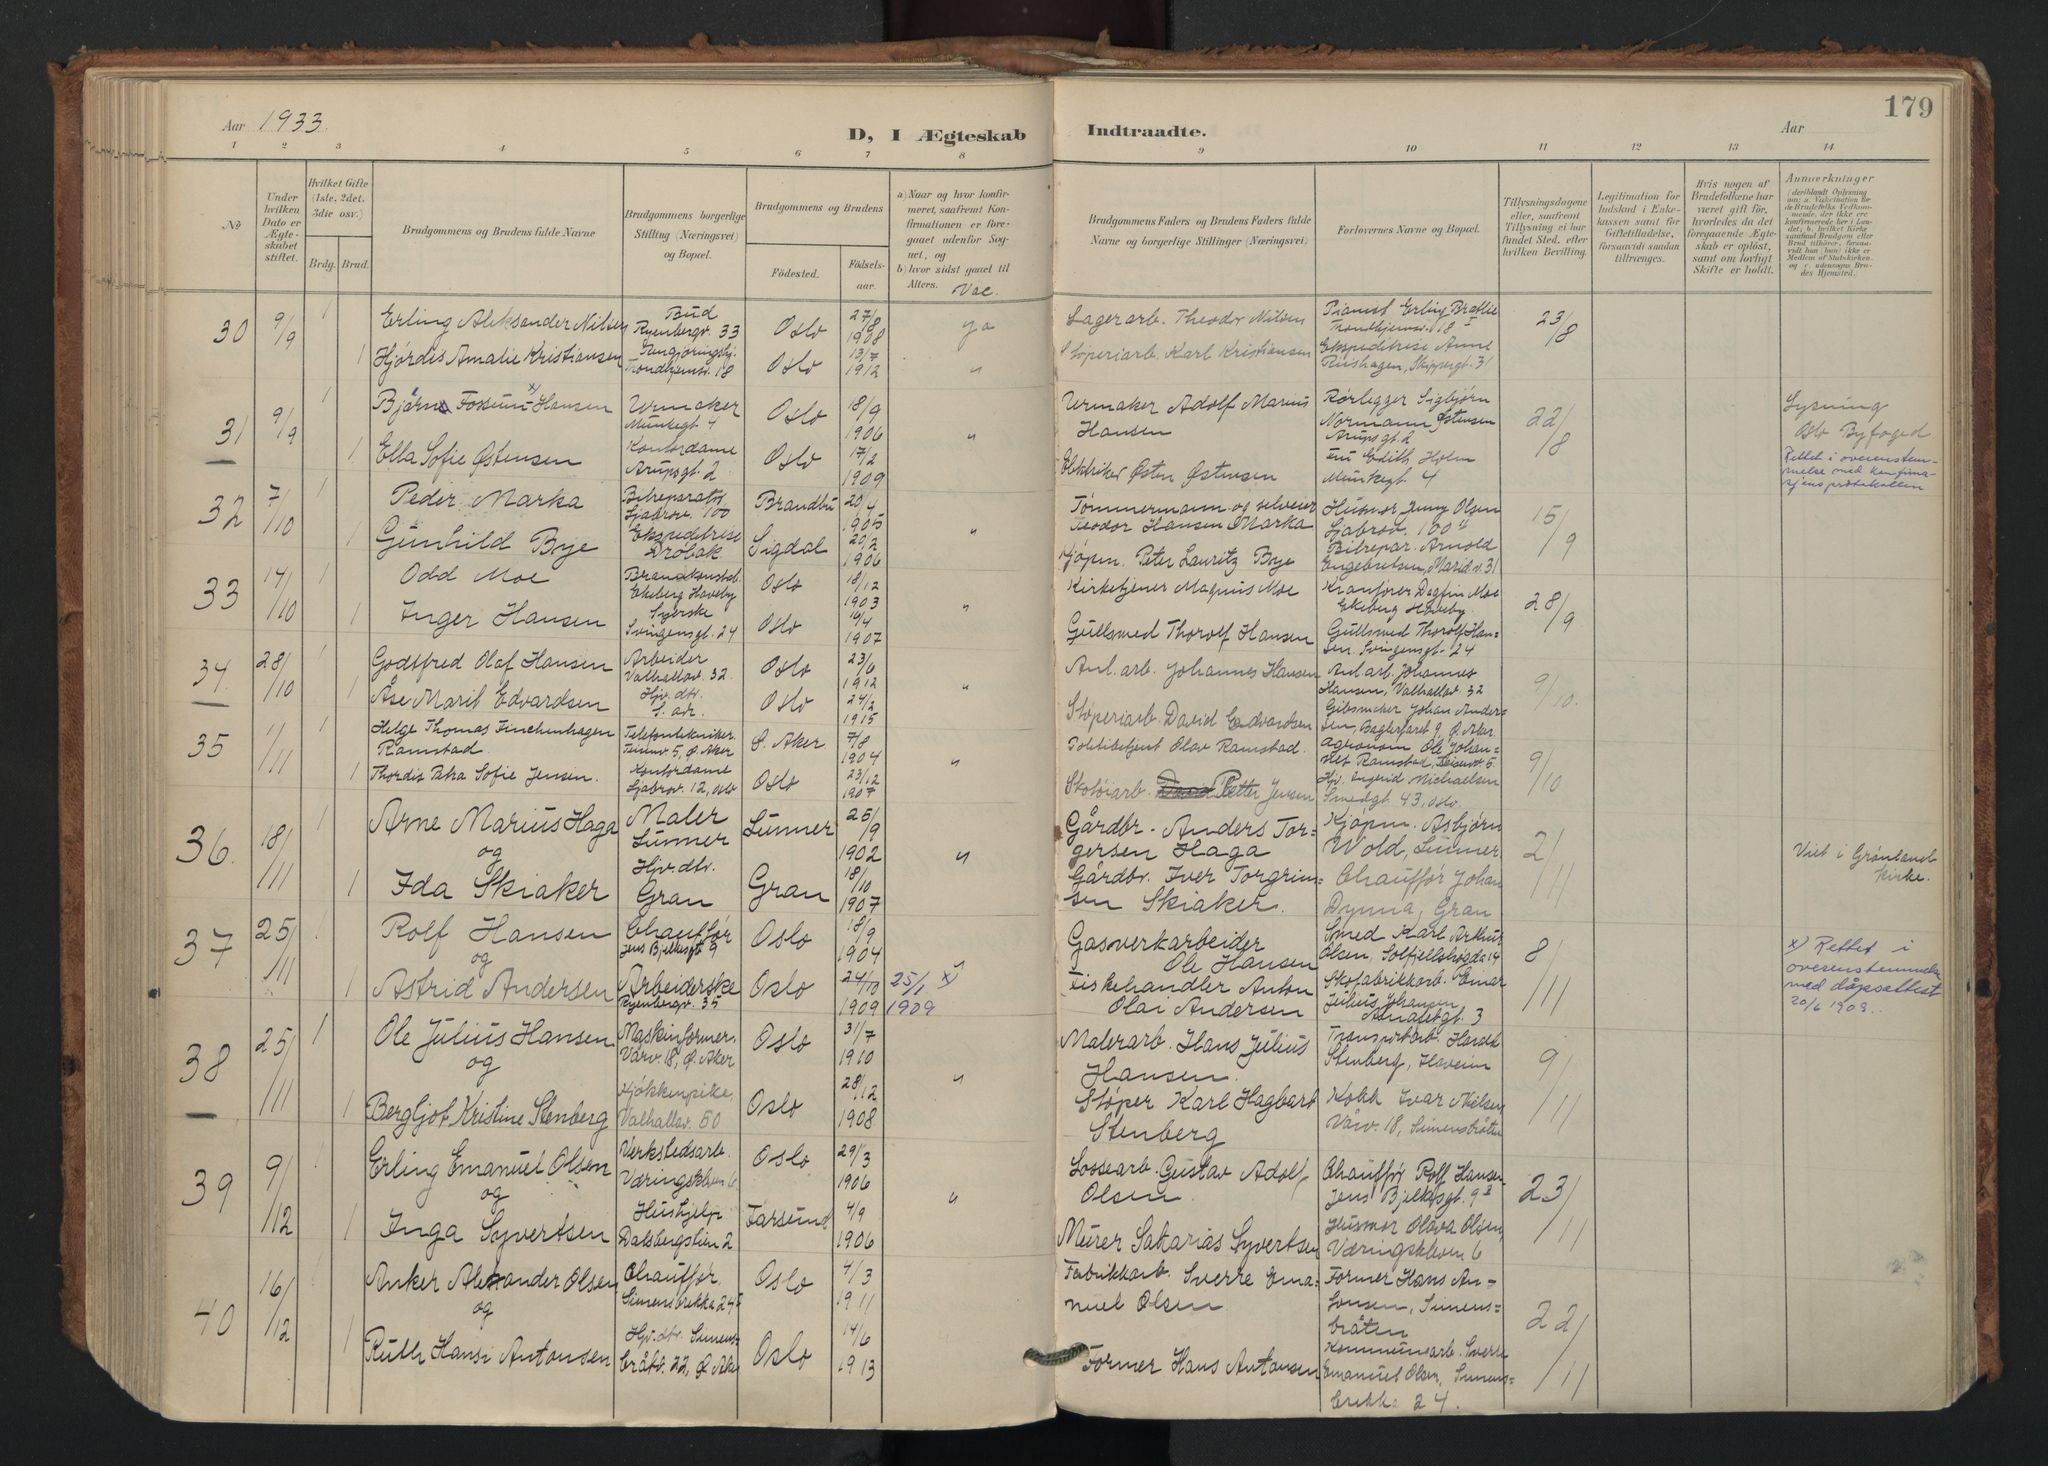 179
Aar 1933.
D, I Ægteskab Indtraadte.
Aar
1 2 3 4 5 6 7 8 9 10 11 12 13 14
No
Under hvilken Dato er Ægteskabet stiftet.
Hvilket Gifte (1ste, 2det, 3die osv.)
Brdg. Brud.
Brudgommens og Brudens fulde Navne
Brudgommens borgerlige Stilling (Næringsvei) og Bopæl.
Brudgommens og Brudens
Fødested. Fødselsaar.
a) Naar og hvor konfirmeret, saafremt Konfirmationen er foregaaet udenfor Sognet, og
b) hvor sidst gaaet til Alters. Vac.
Brudgommens Faders og Brudens Faders fulde Navne og borgerlige Stillinger (Næringsvei).
Forlovernes Navne og Bopæl.
Tillysningsdagene eller, saafremt Tillysning ei har fundet Sted, efter hvilken Bevilling.
Legitimation for Indskud i Enkekassen samt for Giftetilladelse, forsaavidt saadan tiltrænges.
Hvis nogen af Brudefolkene har været gift før, hvorledes da det foregaaende Ægteskab er opløst, samt om lovligt Skifte er holdt.
Anmerkninger
30 9/9 1 Erling Aleksander Nilsen Bud Ryenbergv. 33 Oslo 27/8 1908 ja Lagerarb. Theodor Nilsen Pianist Erling Bratlie Trondhjemsv. 18 I 23/8
1 Hjørdis Amalie Kristiansen Rengjøringshj. Trondhjemsv. 18 Oslo 13/7 1912 " Støperiarb. Karl Kristiansen Ekspeditrise Anne Riishagen, Skippergt. 31
31 9/9 1 Bjørn Fossum x) Hansen Urmaker Munkegt 4 Oslo 18/9 1906 " Urmaker Adolf Marius Hansen Rørlegger Sigbjørn Normann Østensen Arupsgt 2 22/8 Lysning Oslo Byfoged
1 Ella Sofie Østensen Kontordame Arupsgt. 2 Oslo 17/2 1909 Elektriker Østen Østensen Fru Edith Holm Munkegt 4 Rettet i overensstemmelse med konfirmasjonsprotokollen
32 7/10 1 Peder Marka Bilreparatør Ljabrov. 100 Brandbu 20/4 1905 Tømmermann og selveier Teodor Hansen Marka Husmor Jenny Olsen Ljabrov. 100 15/9
1 Gunhild Bye Ekspeditrise Drøbak Sigdal 20/2 1906 " Kjøpm. Peter Lauritz Bye Bilrepar. Arnold Engebretsen, Marid.v. 31
33 14/10 1 Odd Moe Brandkonstab. Ekeberg Haveby Oslo 18/12 1903 Kirketjener Magnus Moe Kranfører Dagfin Moe Ekeberg Haveby. 28/9
1 Inger Hansen Syerske Svingensgt. 24 Oslo 14/4 1907 " Gullsmed Thorolf Hansen Gullsmed Thorolf Hansen. Svingensgt 24
34. 28/10 1 Godtfred Olaf Hansen Arbeider Valhallav. 32 Oslo 23/6 1912 Anl. arb. Johannes Hansen Anl. arb. Johannes Hansen, Valhallav. 32 9/10.
1 Åse Marit Edvardsen Hjv. dtr. S. adr. Oslo 24/2 1915 " Støperiarb. David Edvardsen Gibsmaker Johan Andersen, Baglerfaret 9, Ø. Aker.
35 1/11 1 Helge Thomas Finchenhagen Ramstad. Telefontekniker. 5, Ø. Aker S. Aker 7/8 1904 Politibetjent Olav Ramstad. Agronom Ole Johannes Ramstad, 5. 9/10
1 Thordis Sofie Jensen. Kontordame Ljabrov. 12, Oslo Oslo 23/12 1907 " Skotøiarb. Petter Jensen Hjv. Ingerid Michaelsen Smedgt. 43, Oslo.
36. 18/11 1 Arne Marius Haga Maler Lunner Lunner 25/9 1902 Gårdbr. Anders Torgersen Haga Kjøpm. Asbjørn Wold, Lunner. 2/11
og
1 Ida Skiaker Hjv. dtr. Gran Gran 18/10 1907 " Gårdbr. Iver Torgrimsen Skiaker. Chauffør Johan Dynna, Gran Viet i Grønland kirke.
37 25/11 1 Rolf Hansen Chauffør Jens Bjelkesgt 9 Oslo 18/9 1904 Gasverkarbeider Ole Hansen Smed Karl Arthur Olsen, Solfjellshøgda 14 8/11 x) Rettet i overensstemmelse med dåpsattest 20/6 1909.
og
1 Astrid Andersen Arbeiderske Ryenbergv. 35 Oslo 24/10 1909 25/1 x) 1909 Fiskehandler Anton Olai Andersen Skofabrikkarb. Einar Julius Johansen 3
38 25/11 1 Ole Julius Hansen Maskinformer. Vårv. 18, Ø. Aker Oslo 31/7 1910 Malerarb. Hans Julius Hansen. Transportarb. Harald Stenberg, 9/11
og
1 Bergljot Kristine Stenberg Kjøkkenpike, Valhallav. 50 Oslo 28/12 1908 " Støper Karl Hagbart Stenberg Kokk Ivar Nielsen Vårv. 18, Simensbråten
39 9/12 1 Erling Emanuel Olsen Verkstedsarb. Væringskleven 6 Oslo 29/3 1906 Lossearb. Gustav Adolf Olsen. Chauffør Rolf Hansen Jens Bjelkesgt. 9 23/11
og
1 Inga Syvertsen Hushjelp Dalsbergstien 2 Farsund 4/9 1906 " Murer Sakarias Syvertsen Husmor Olava Olsen, Væringskleven 6
40 16/12 Anker Alexander Olsen Chauffør. Simensbrekka 24 Oslo 4/3 1911 Fabrikkarb. Sverre Emanuel Olsen Former Hans Antonsen, Simensbråten 22/11
og
1 Ruth Hansi Antonsen Hjv. dtr. Simensbråtv. 22, Ø. Aker Oslo 14/6 1913 Former Hans Antonsen Kommunearb. Sverre Emanuel Olsen, Simensbrekka 24.